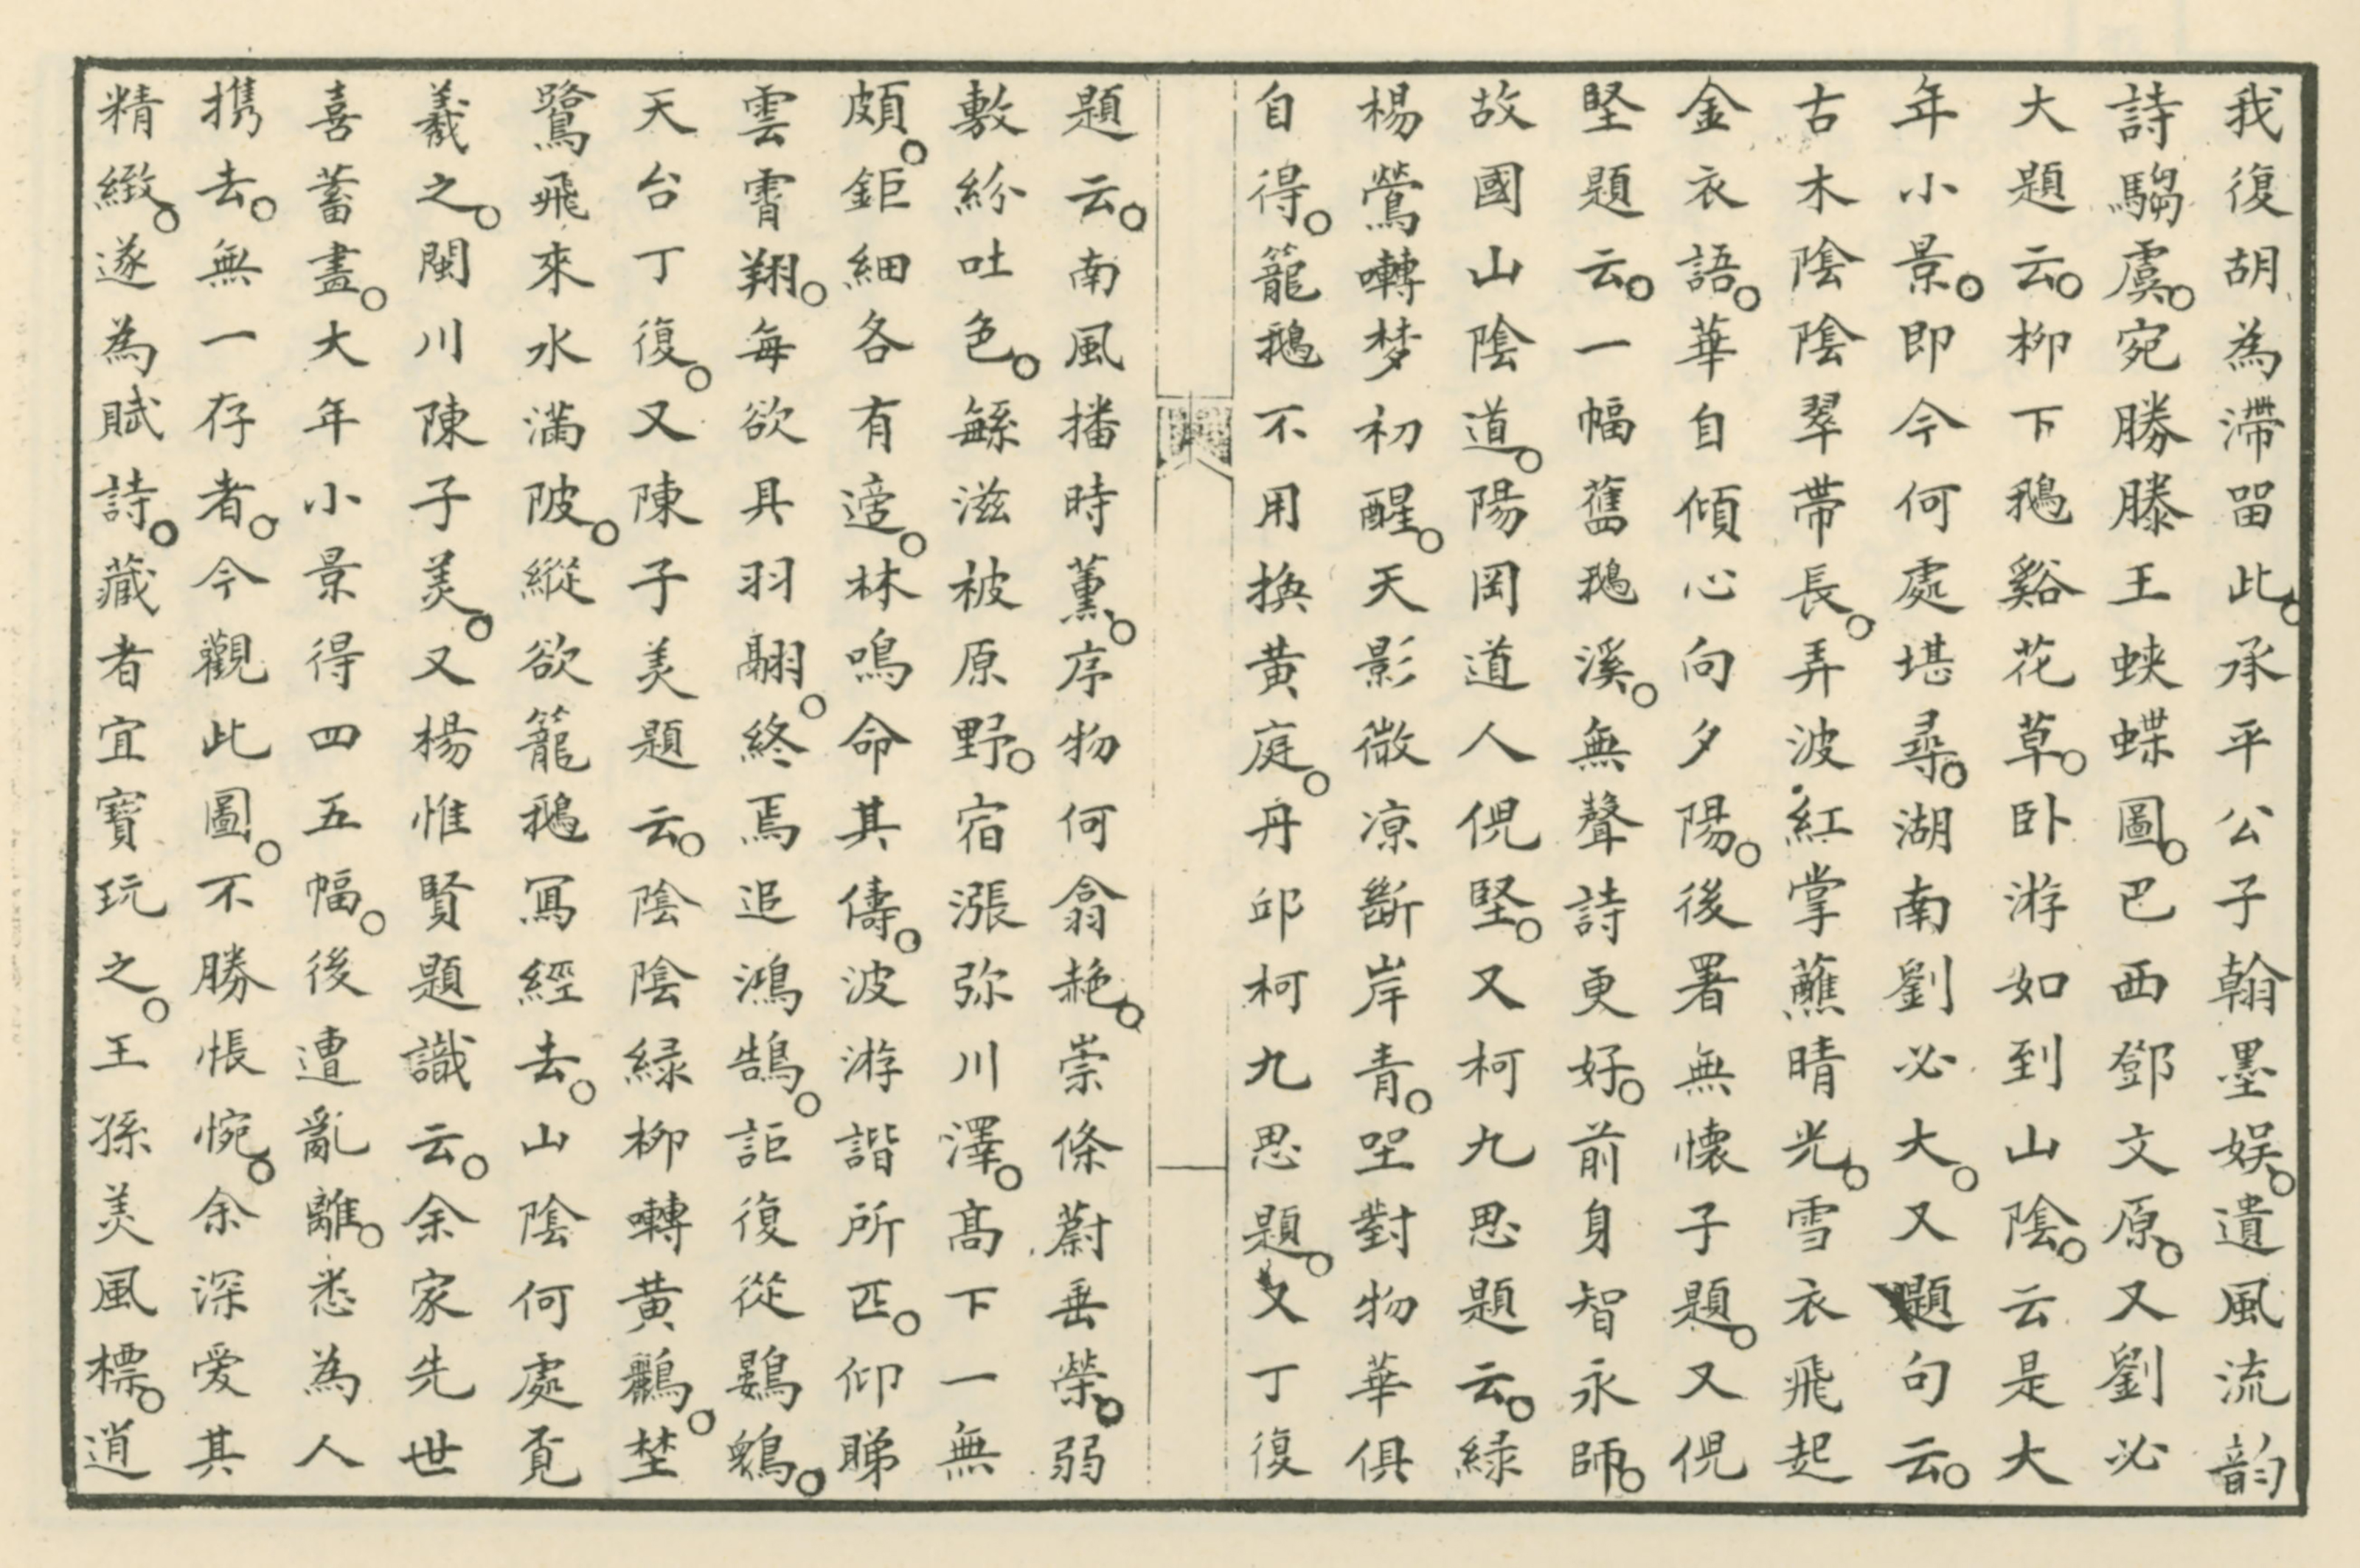 我復胡為滯留此。承平公子翰墨娱。遺風流韵
詩騶虞。宛勝滕王蛺蝶圖。巴西鄧文原。又劉必
大題云。柳下鵝谿花草。卧游如到山陰。云是大
年小景。即今何處堪尋。湖南劉必大。又題句云。
古木陰陰翠帶長。弄波紅掌蘸晴光。雪衣飛起
金衣語。華自傾心向夕陽。後署無懷子題。又倪
堅題云。一幅舊鵝溪。無聲詩更好。前身智永師。
故國山陰道。陽岡道人倪堅。又柯九思題云。緑
楊鶯囀梦初醒。天影微凉斷岸青。坐對物華俱
自得。籠鵝不用換黄庭。丹邱柯九思題。又丁復
題云。南風播時薰。序物何翕赩。崇條蔚垂榮。弱
敷紛吐色。緐滋被原野。宿漲弥川澤。高下一無
頗。鉅細各有適。林鳴命其儔。波游諧所匹。仰睇
雲霄翔。每欲具羽翮。終焉追鴻鵠。詎復從鷃鷃。
天台丁復。又陳子美題云。陰陰緑柳囀黄鸝。埜
鷺飛來水滿陂。縱欲籠鵝冩經去。山陰何處覔
羲之。閩川陳子美。又楊惟賢題識云。余家先世
喜蓄畫。大年小景得四五幅。後遭亂離。悉為人
携去。無一存者。今觀此圖。不勝悵惋。余深爱其
精緻。遂為賦詩。藏者宜寳玩之。王孫美風標。逍